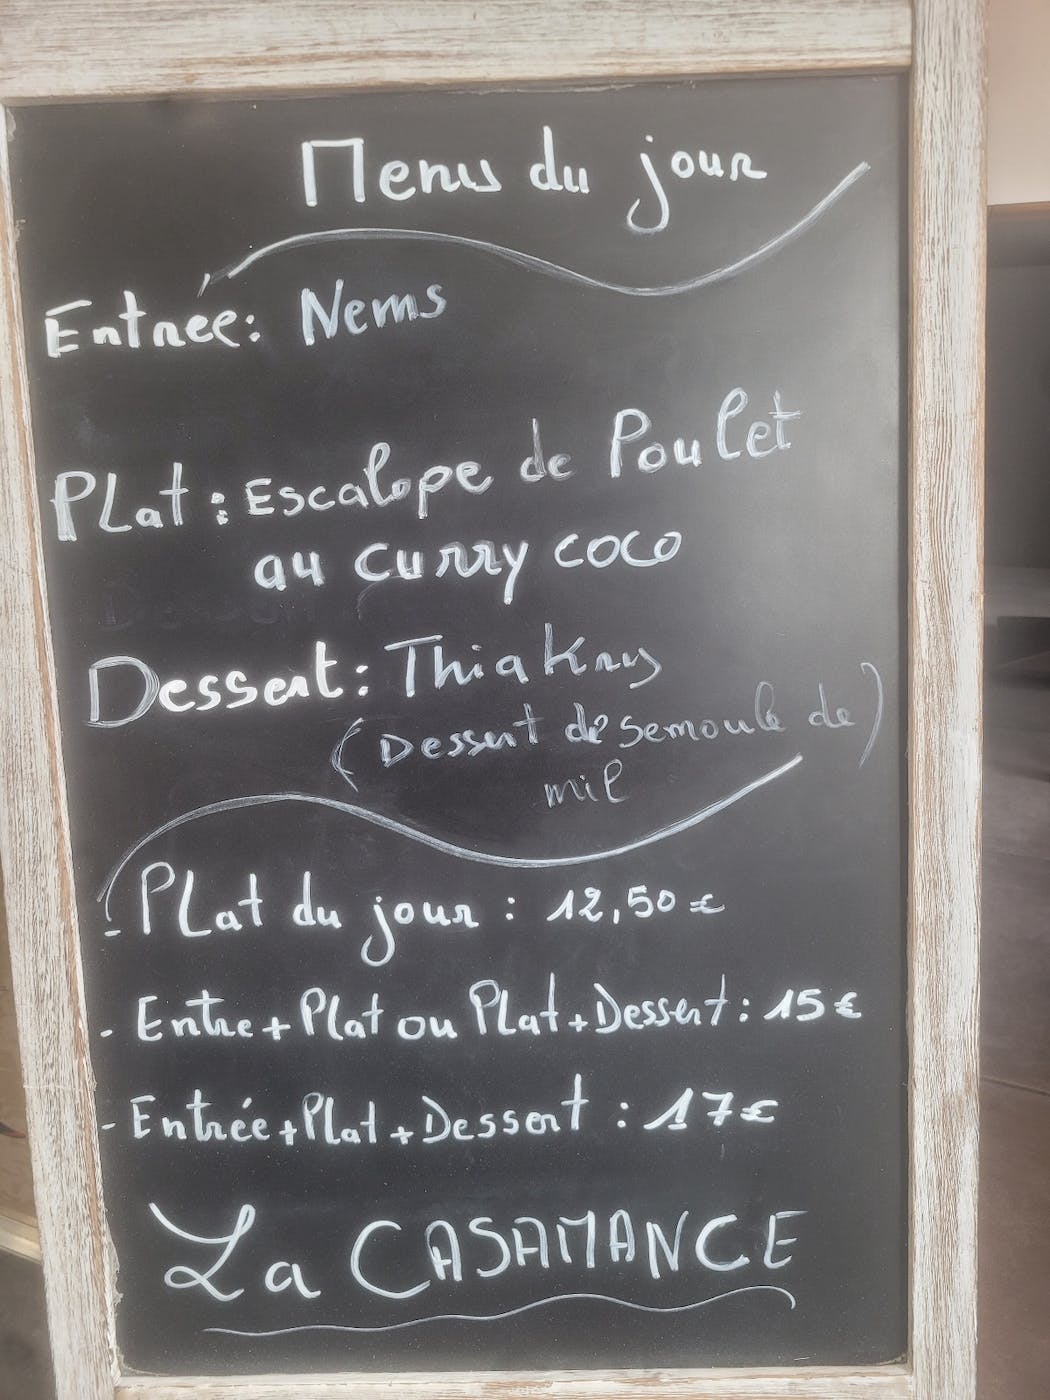 Menu du jour
Entrée: Nems
Plat: Escalope de Poulet
au curry coco
Dessert: Thiakry
(Dessert de semoule de)
mil
- Plat du jour : 12,50 €
- Entre + Plat ou Plat + Dessert : 15 €
- Entrée + Plat + Dessert : 17 €
La CASAMANCE